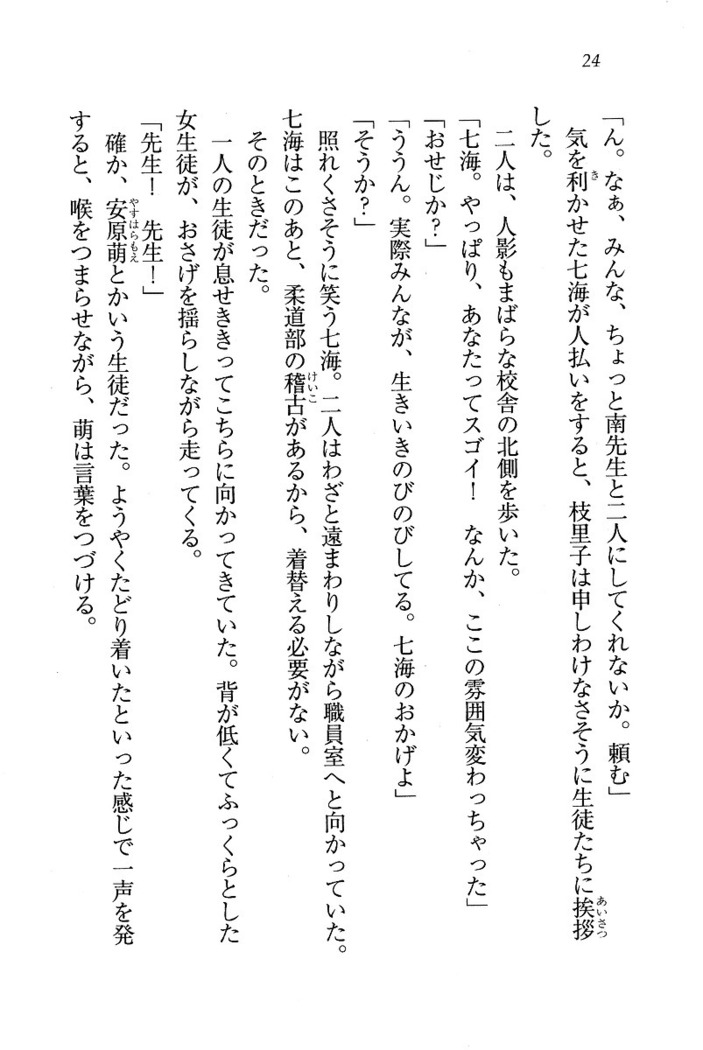 24
「ん。なぁ、みんな、ちょっと南先生と二人にしてくれないか。頼む」
気を利かせた七海が人払いをすると、枝里子は申しわけなさそうに生徒たちに挨拶
した。
二人は、人影もまばらな校舎の北側を歩いた。
「七海。やっぱり、あなたってスゴイ！　なんか、ここの雰囲気変わっちゃった」
「おせじか？」
「ううん。実際みんなが、生きいきのびのびしてる。七海のおかげよ」
「そうか？」
照れくさそうに笑う七海。二人はわざと遠まわりしながら職員室へと向かっていた。
七海はこのあと、柔道部の稽古があるから、着替える必要がない。
そのときだった。
一人の生徒が息せききってこちらに向かってきていた。背が低くてふっくらとした
女生徒が、おさげを揺らしながら走ってくる。
「先生！　先生！」
確か、安原萌とかいう生徒だった。ようやくたどり着いたといった感じで一声を発
すると、喉をつまらせながら、萌は言葉をつづける。